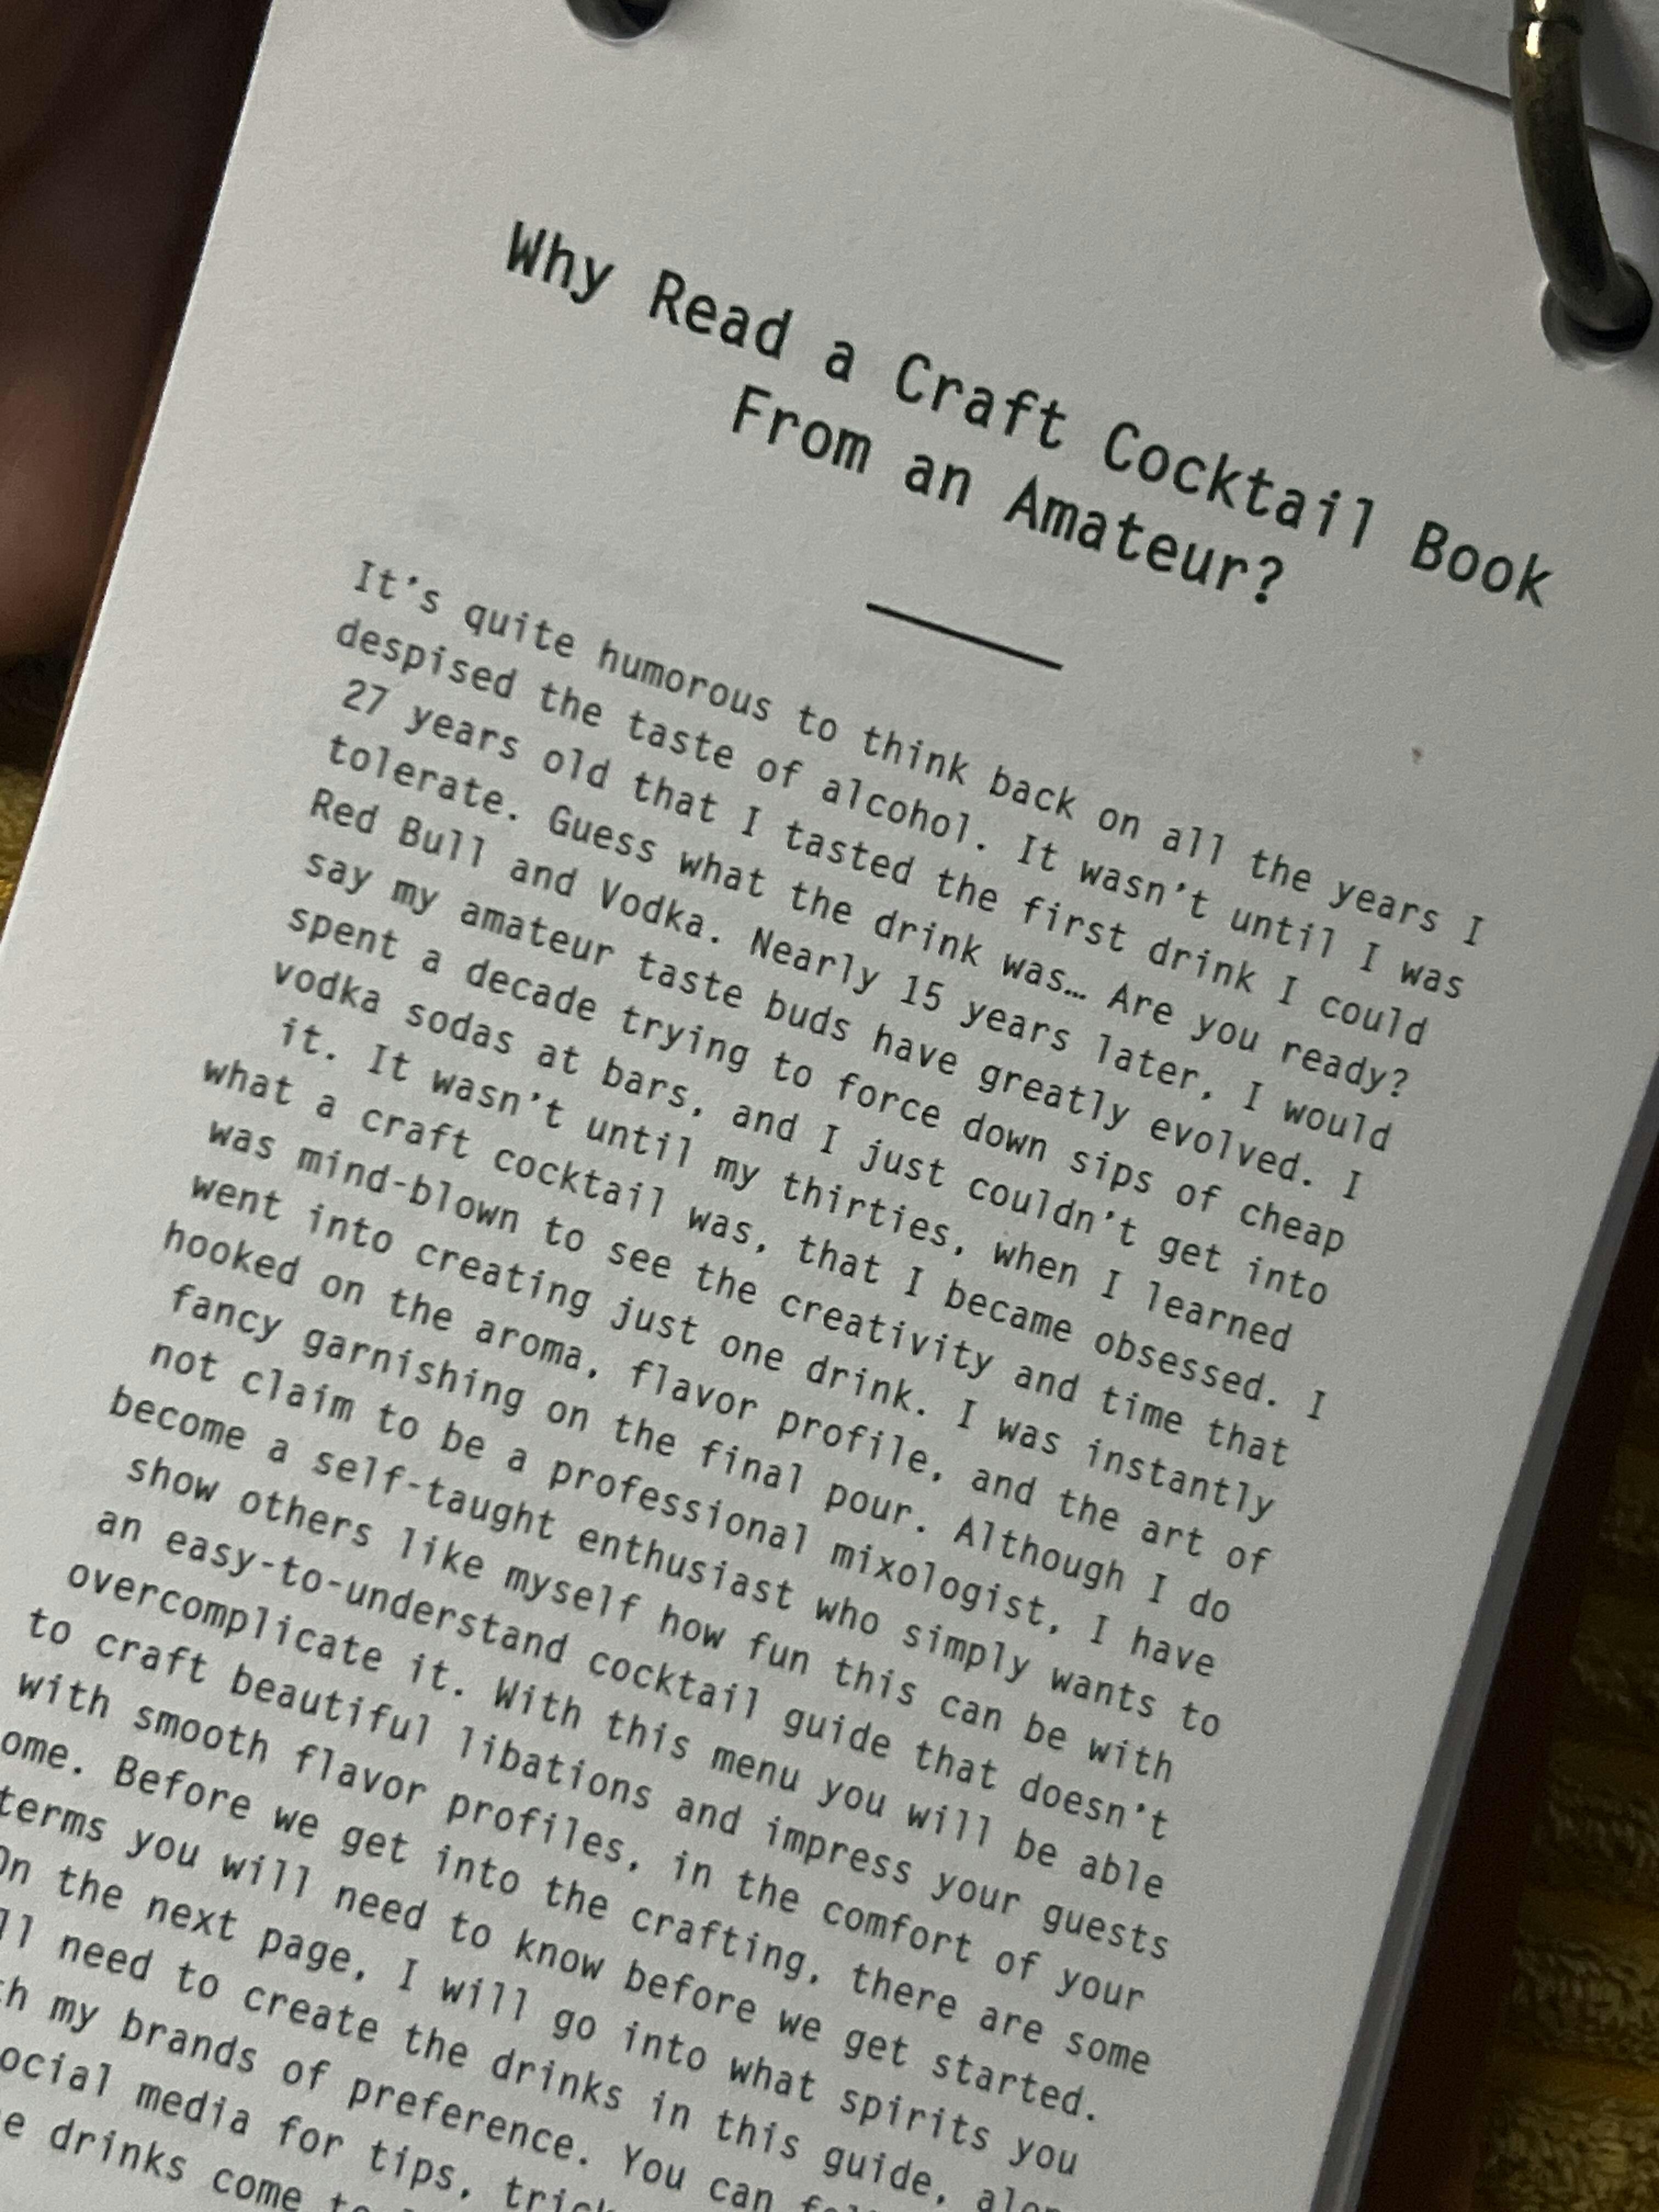 Why Read a Craft Cocktail Book
From an Amateur?
It's quite humorous to think back on all the years I
despised the taste of alcohol. It wasn't until I was
27 years old that I tasted the first drink I could
tolerate. Guess what the drink was… Are you ready?
Red Bull and Vodka. Nearly 15 years later, I would
say my amateur taste buds have greatly evolved. I
spent a decade trying to force down sips of cheap
vodka sodas at bars, and I just couldn't get into
it. It wasn't until my thirties, when I learned
what a craft cocktail was, that I became obsessed. I
was mind-blown to see the creativity and time that
went into creating just one drink. I was instantly
hooked on the aroma, flavor profile, and the art of
fancy garnishing on the final pour. Although I do
not claim to be a professional mixologist, I have
become a self-taught enthusiast who simply wants to
show others like myself how fun this can be with
an easy-to-understand cocktail guide that doesn't
overcomplicate it. With this menu you will be able
to craft beautiful libations and impress your guests
with smooth flavor profiles, in the comfort of your
ome. Before we get into the crafting, there are some
terms you will need to know before we get started.
On the next page, I will go into what spirits you
ll need to create the drinks in this guide,
my brands of preference. You can
ocial media for tips,
drinks come